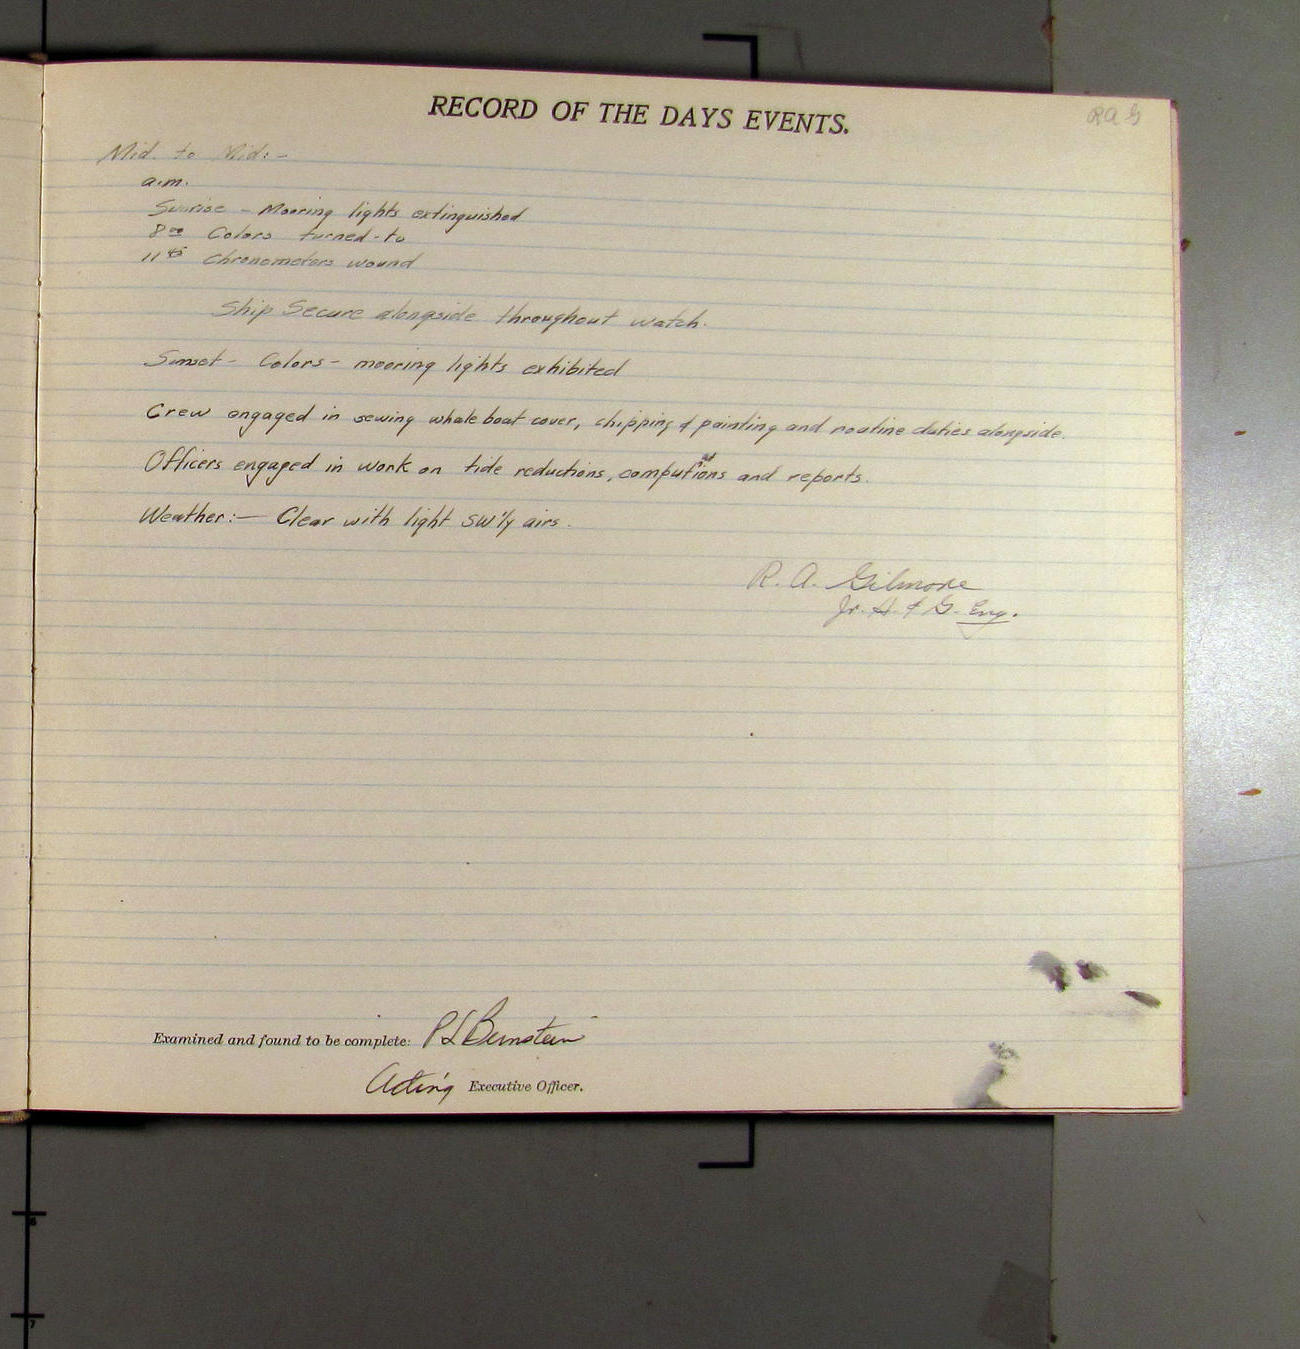 RECORD OF THE DAYS EVENTS.
RAG
Mid. to Mid:-
a.m.
Sunrise - Mooring lights extinguished
8⁰⁰ Colors turned-to
11⁴⁵ Chronometers wound
Ship Secure alongside throughout watch.
Sunset - Colors - mooring lights exhibited
Crew engaged in sewing whale boat cover, chipping & painting and routine duties alongside.
Officers engaged in work on tide reductions, computations and reports.
Weather:- Clear with light SW'ly airs.
R. A. Gilmore
Jr. H. & G. Eng.
Examined and found to be complete: P L Bernstein
Acting Executive Officer.
6
7